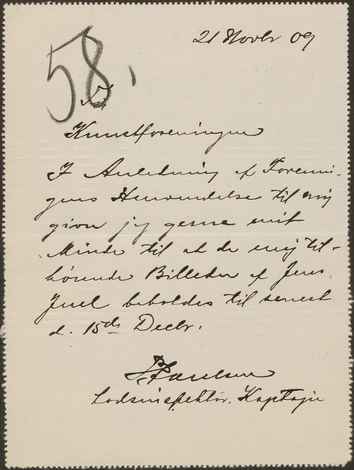 21 Novbr 09
58.
Til
Kunstforeningen
I Anledning af Forenin-
gens Henvendelse til mig
giver jeg gerne mit
Minde til at de mig til-
hørende Billeder af Jens
Juel beholdes til senest
d. 15de Decbr.
Paulsen
Lodsinspektör. Kaptajn